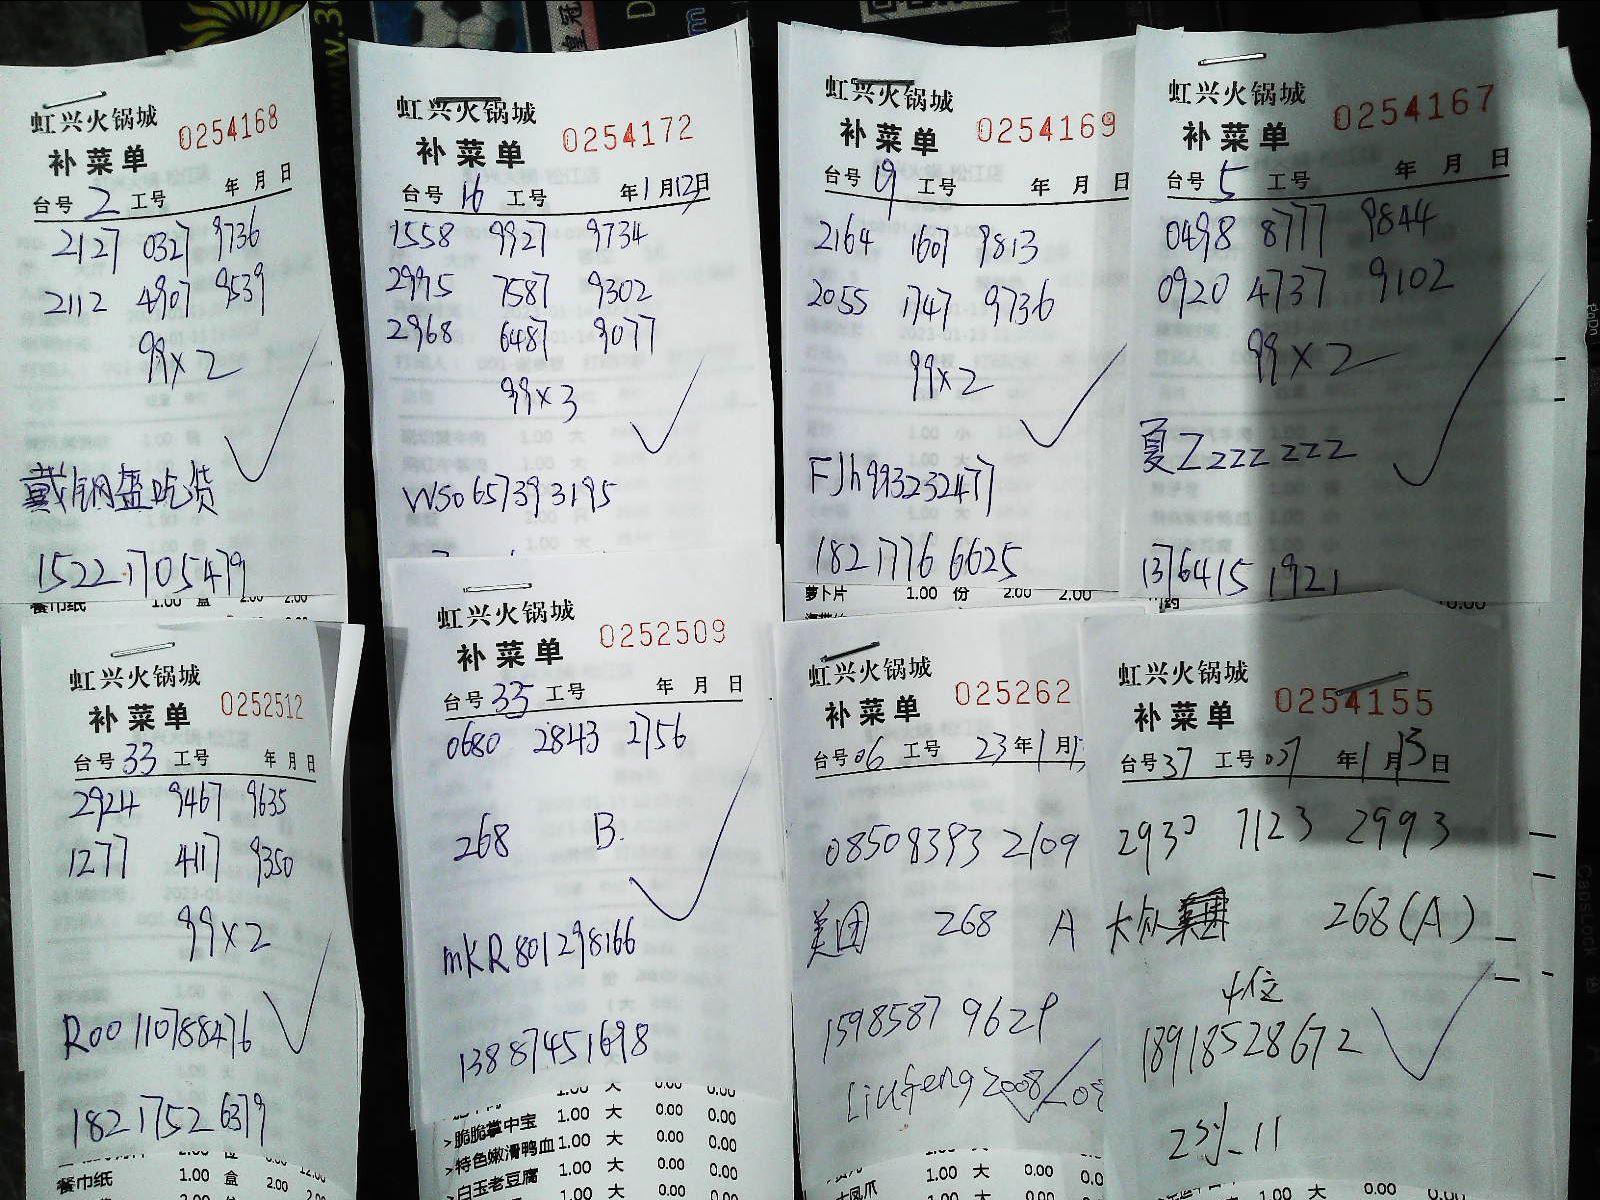 虹兴火锅城
0254168
补菜单
台号 2 工号 年 月 日
2127 0327 9736
2112 4907 9539
99×2
戴钢盔吃货
15221705479
餐巾纸 1.00 盒 2.00 2.00
虹兴火锅城
0254172
补菜单
台号 16 工号 年 1 月 12 日
1558 9927 9734
2995 7587 9302
2968 6487 9077
99×3
WSo657393195
虹兴火锅城
0254169
补菜单
台号 19 工号 年 月 日
2164 1607 9813
2055 1747 9736
99×2
FJh993232477
18217766625
萝卜片 1.00 份 2.00 2.00
虹兴火锅城
0254167
补菜单
台号 5 工号 年 月 日
0498 8777 9844
0920 4737 9102
99×2
夏Zzzz zzz
13764151921
虹兴火锅城
0252512
补菜单
台号 33 工号 年 月 日
2924 9467 9635
1277 4117 9350
99×2
R00110788476
18217526379
餐巾纸 1.00 盒 2.00
虹兴火锅城
0252509
补菜单
台号 33 工号 年 月 日
0680 2843 2756
268 B.
mKR801298166
13887451698
1.00 大 0.00 0.00
>脆脆掌中宝 1.00 大 0.00 0.00
>特色嫩滑鸭血 1.00 大 0.00 0.00
>白玉老豆腐 1.00 大 0.00 0.00
虹兴火锅城
025262
补菜单
台号 06 工号 23 年 1 月
0850 8393 2109
美团 268 A
15985879629
Liufeng2008
1.00 大 0.00 0.00
大凤爪 1.00 大 0.00
虹兴火锅城
0254155
补菜单
台号 37 工号 037 年 1 月 13 日
2930 7123 2993
大众 268(A)
4位
18918528672